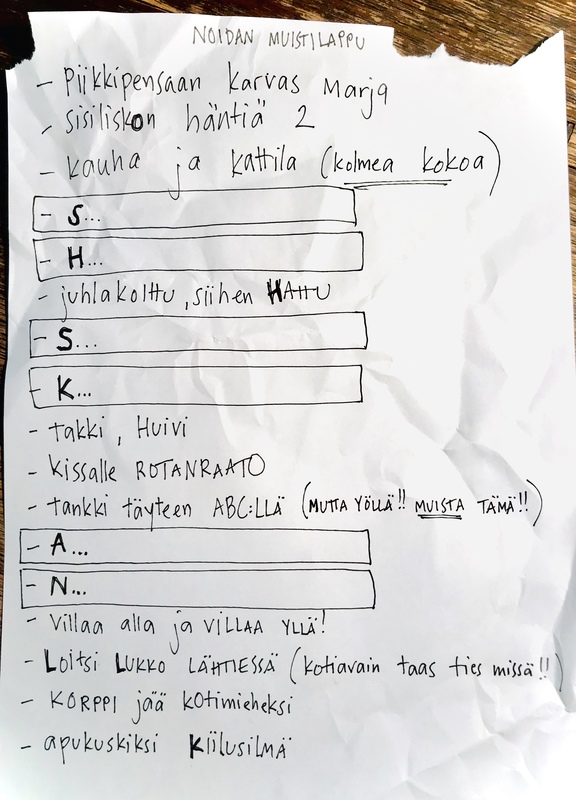 NOIDAN MUISTILAPPU
- Piikkipensaan karvas marja
- sisiliskon häntiä 2
- kauha ja kattila (kolmea kokoa)
- S...
- H...
- juhlakolttu, siihen HATTU
- S...
- K...
- takki, Huivi
- kissalle ROTANRAATO
- tankki täyteen ABC:LLÄ (MUTTA YÖLLÄ!! MUISTA TÄMÄ!!)
- A...
- N...
- Villaa alla ja VILLAA YLLÄ!
- Loitsi LUKKO LÄHTIESSÄ (kotiavain taas ties missä!!)
- KORPPI jää kotimieheksi
- apukuskiksi KiiLUSiLMÄ